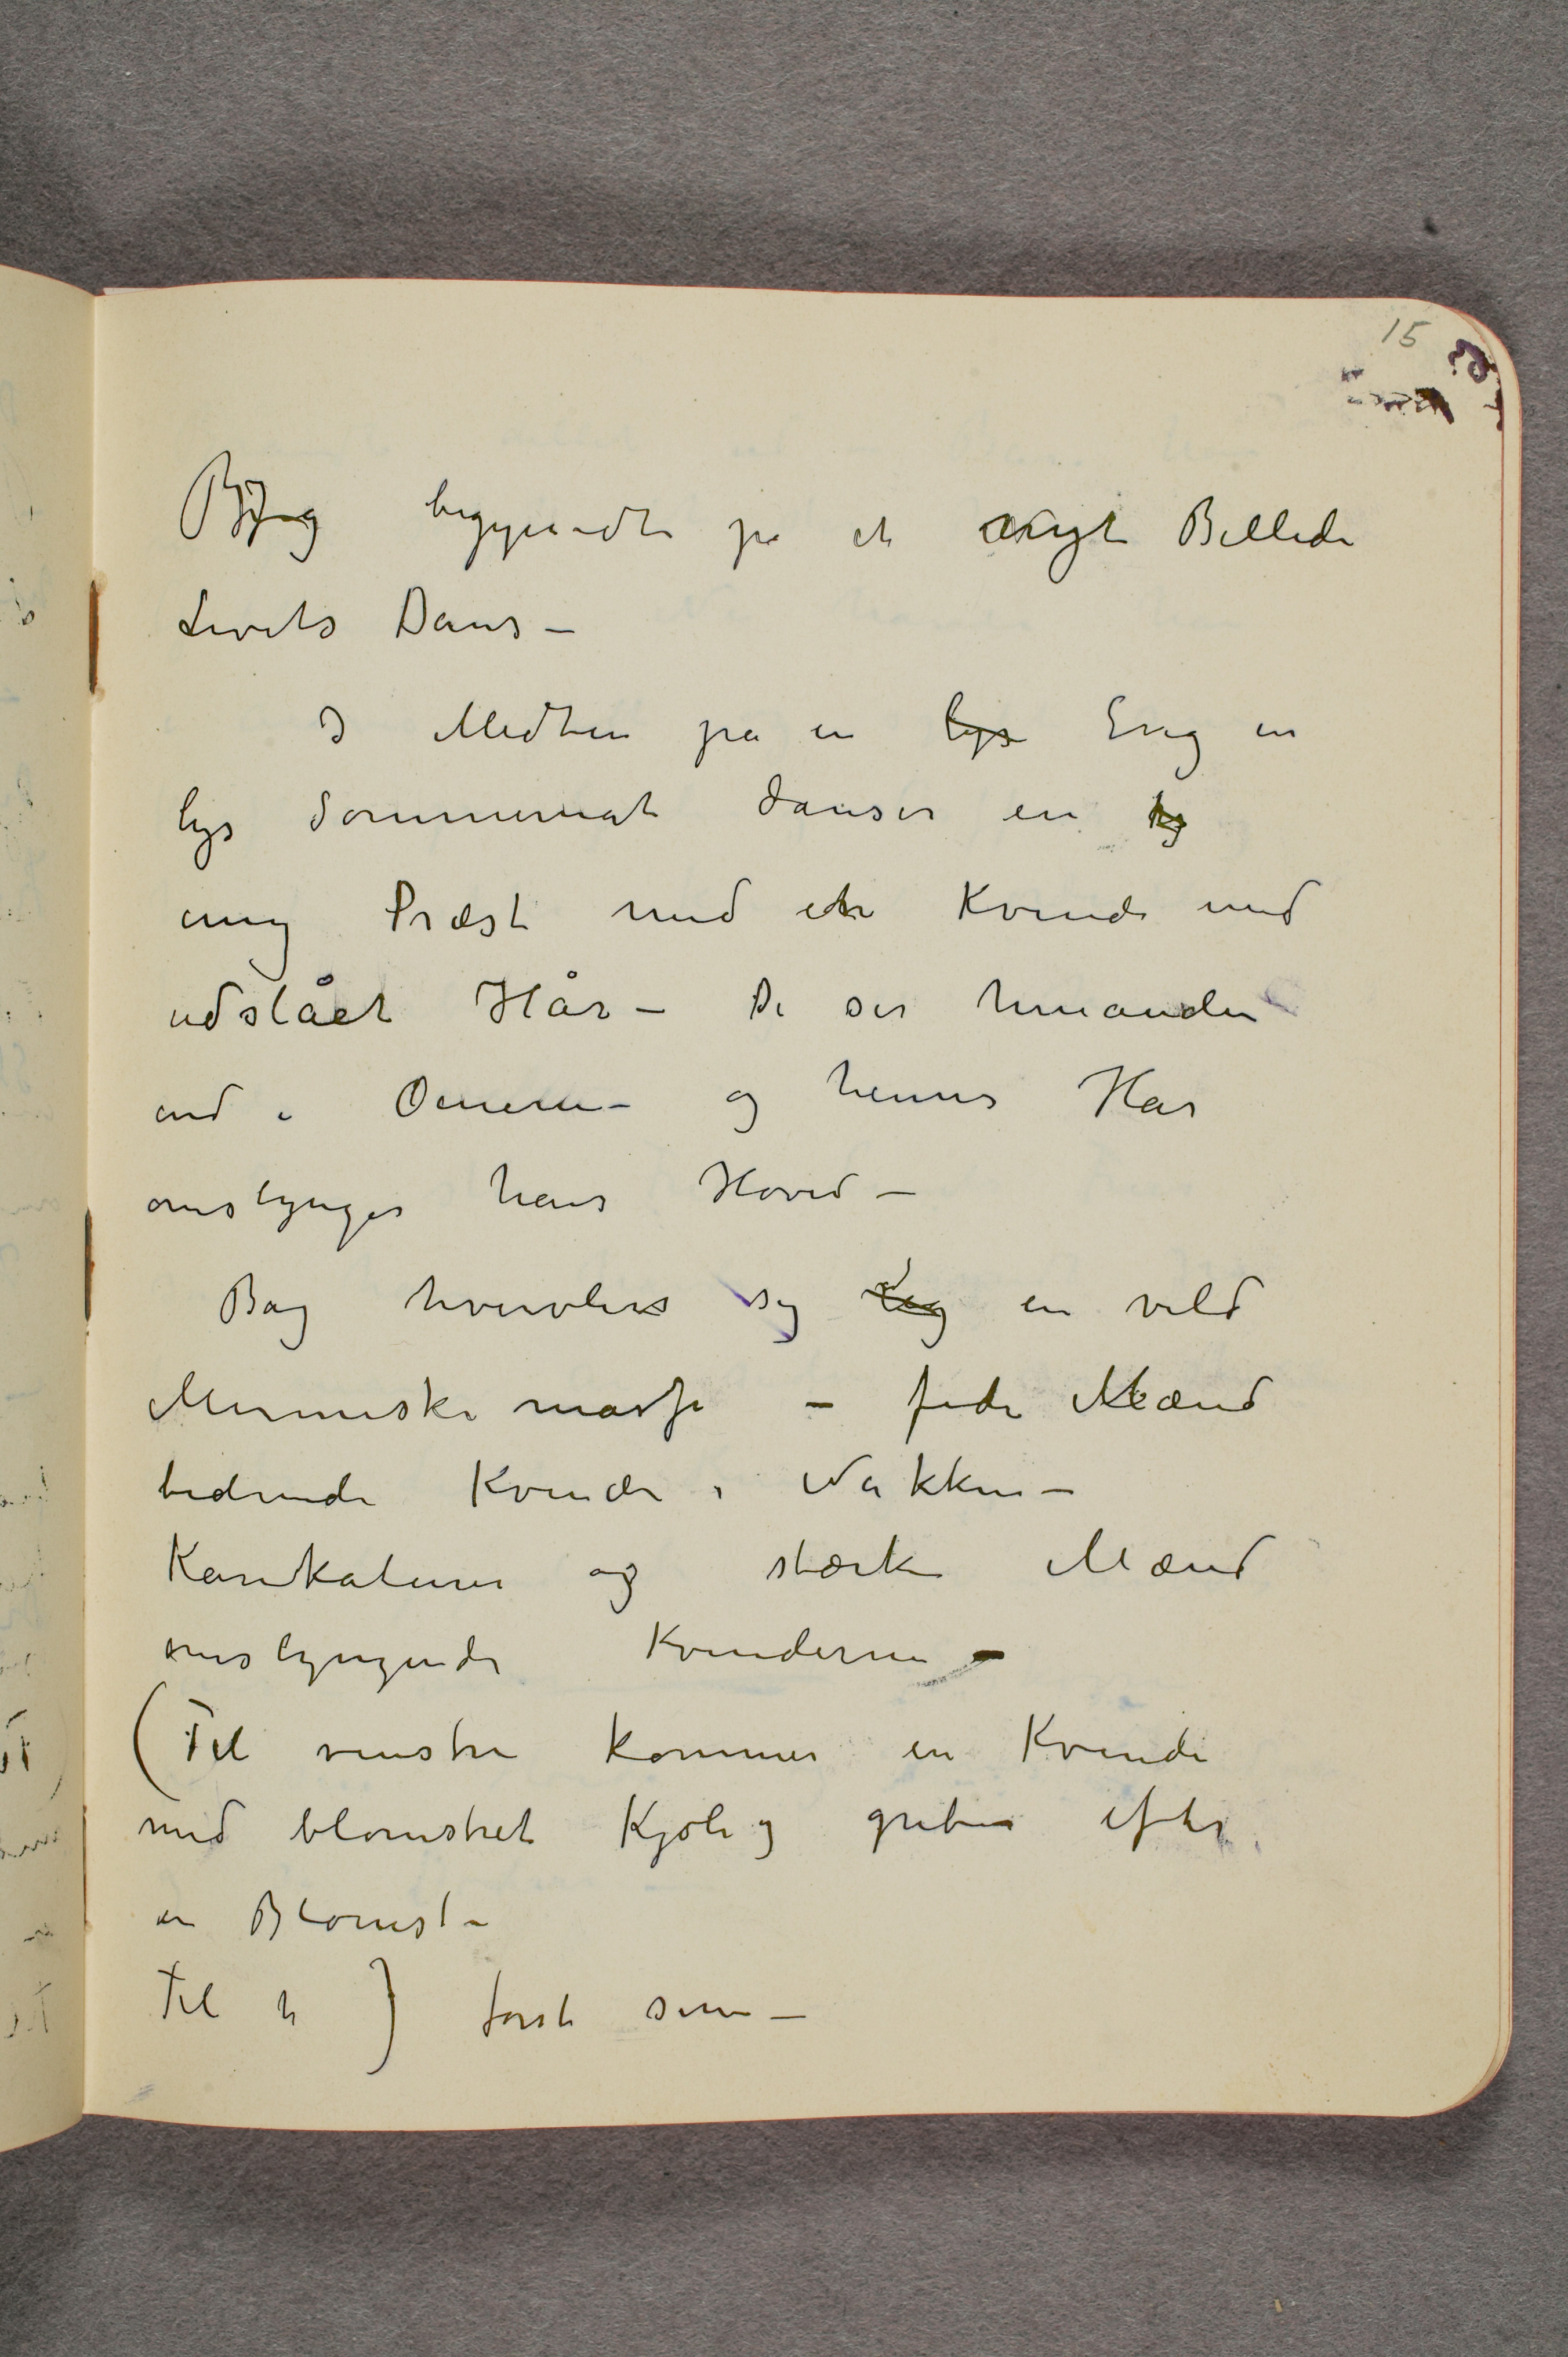 15
Jeg begyndte på et nyt Billede
Livets Dans –
I Midten på en lys Eng en
lys Sommernat danser en
ung Præst med en Kvinde med
udslået Hår – De ser hinanden
ind i Öinene – og hennes Hår
omslynger hans Hoved –
Bag hvirvler sig en vild
Menneskemasse – fede Mænd
bidende Kvinder i Nakken –
Karikaturer og stærke Mænd
omslyngende Kvinderne –
(Til venstre kommer en Kvinde
med blomstret Kjole og griber efter
en Blomst –
Til h ) först sene –